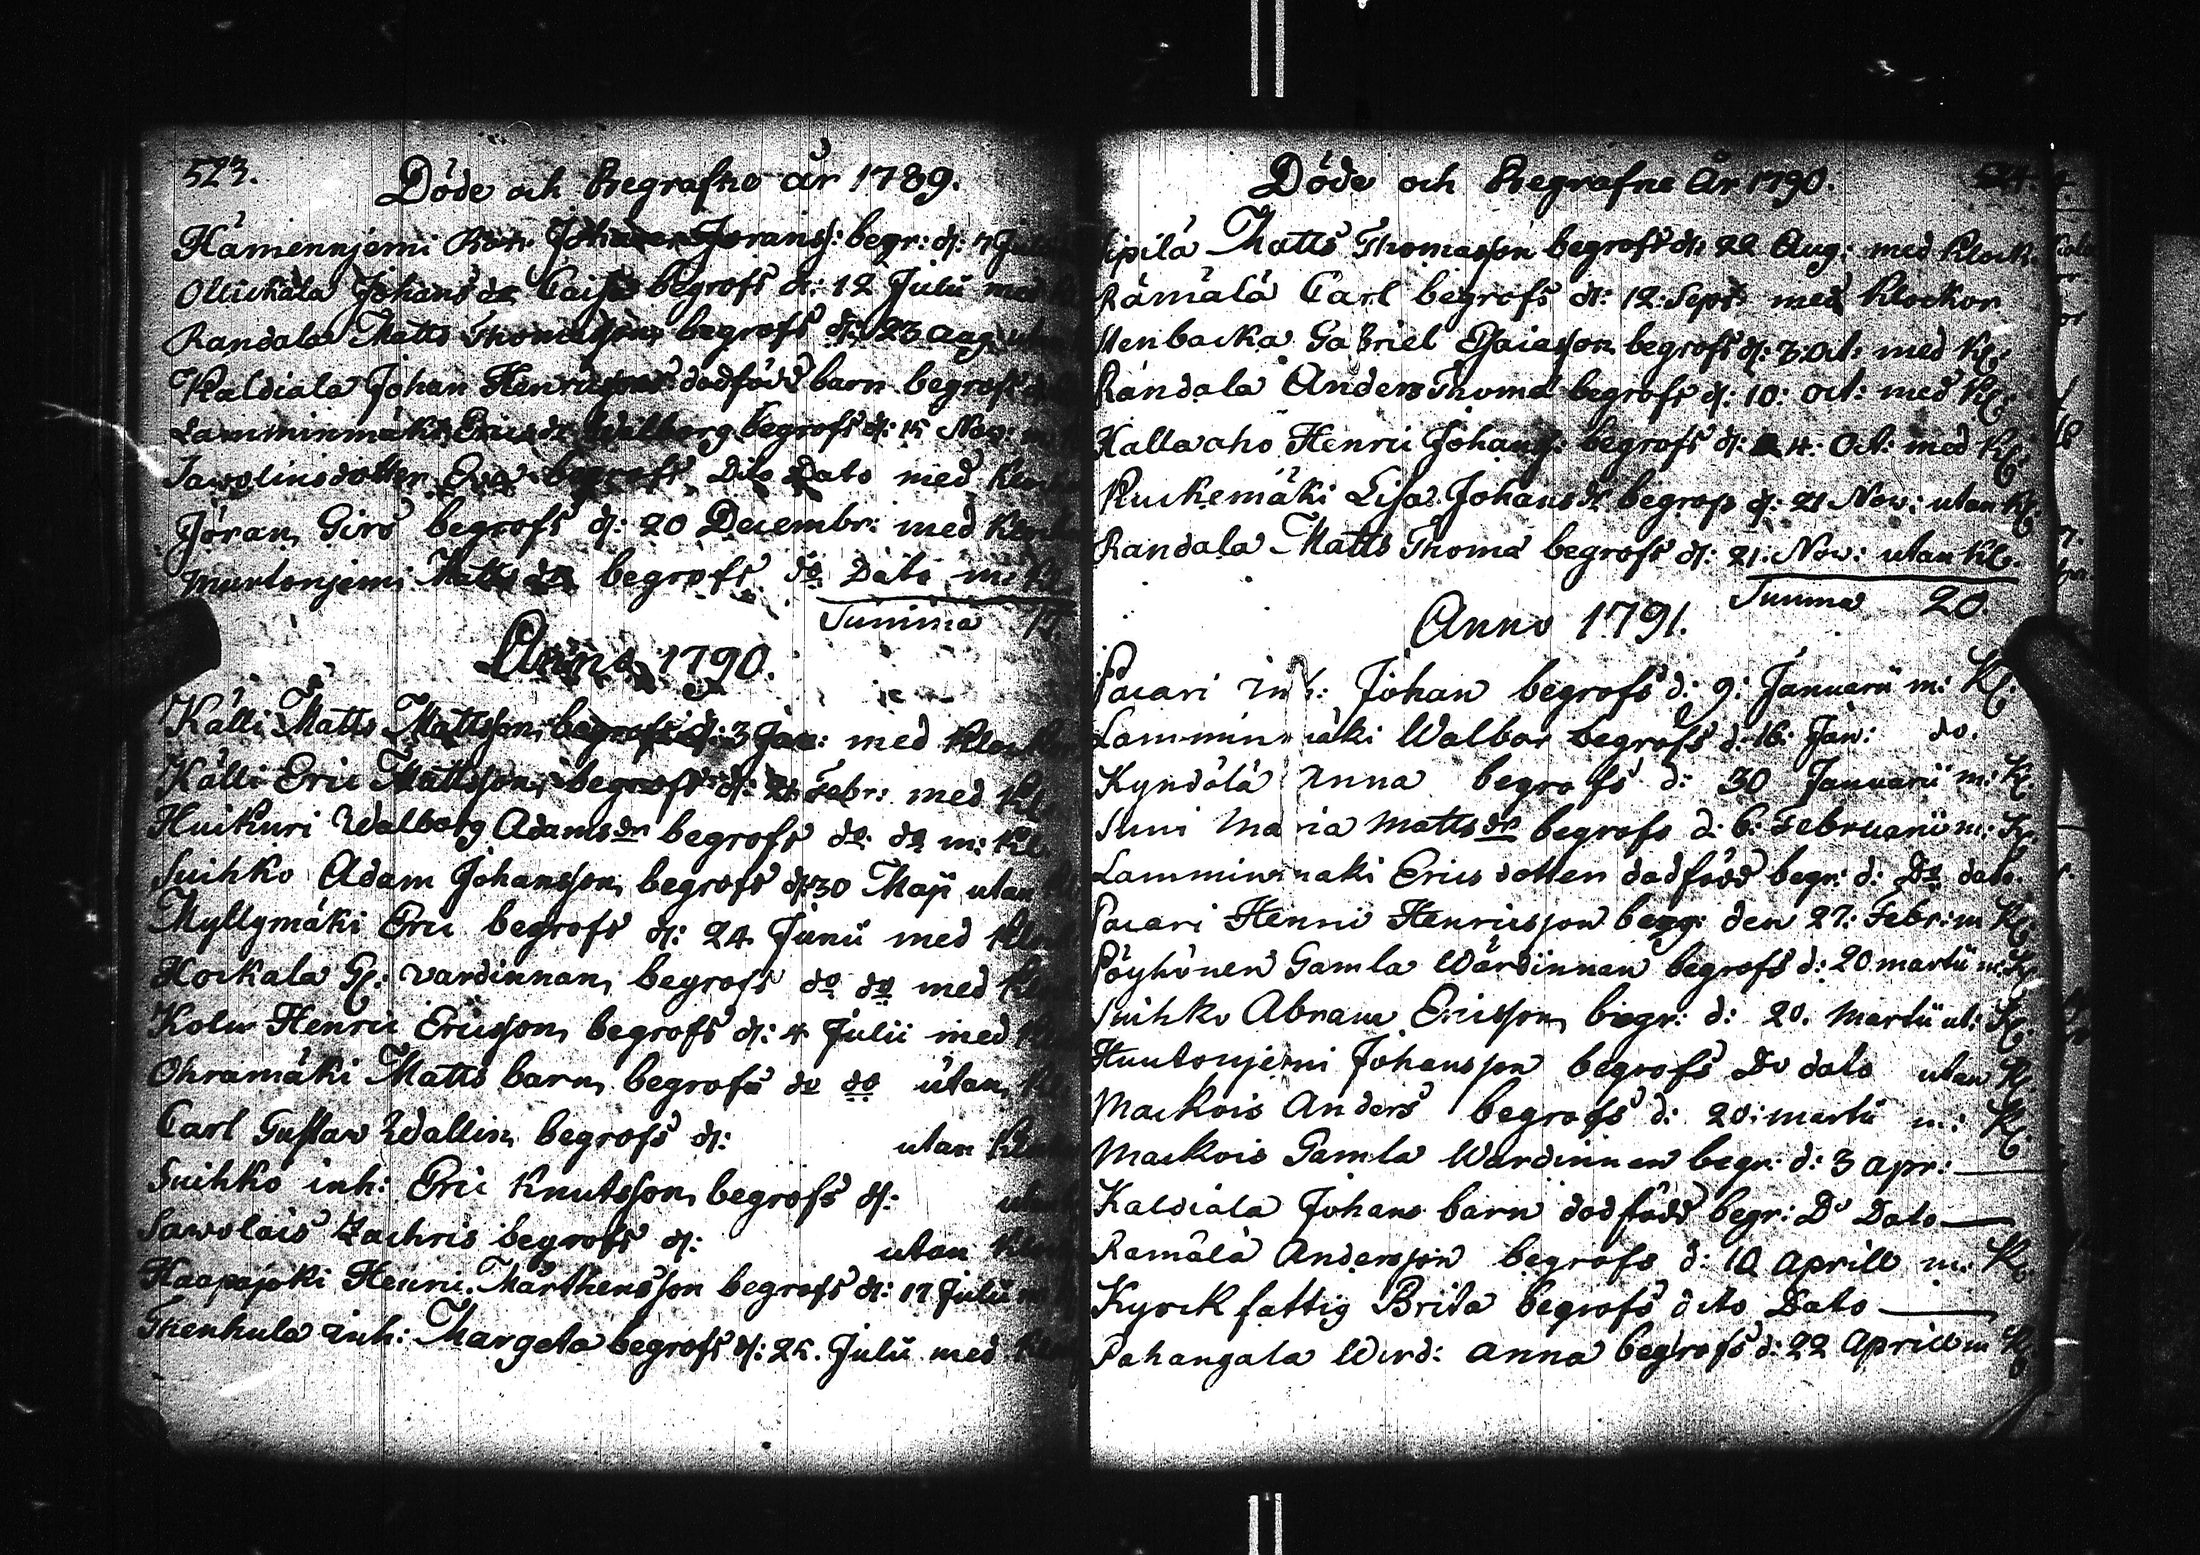 523.
Döde och Begrafne år 1789.
Hämennjemi Jöranss: begr: d: 7 Julii
Ollickala Johans dr Caisa begrofs d: 12 Julii med
Randala Matts Thomasson begrofs d: 23 Aug utan
Kaldiala Johan Henricssons dödfödd barn begrofs
Lamminmäki Ericsdr Wallborg begrofs d: 15 Nov: m:
Sawolinsdotter Eva begrofs Dito Dato med Klockor
Jöran Girs begrofs d: 20 Decembr: med Klockor
Murtonjemi Matts dr begrofs do Dato m: Kl
Summa
Anno 1790.
Källi Matts Mattsson begrofs d: 3 Jan: med Klockor
Källi Eric Mattsson begrofs d: 21 Febr: med Kl.
Huikuri Walborg Adamsdr begrofs do: do m: Kl.
Suihko Adam Johansson begrofs d: 30 Maji utan
Myllymäki Eric begrofs d: 24 Junii med Klock
Hockala Gl: värdinnan begrofs do do med
Kolu Henric Ericsson begrofs d: 4 Julii med
Ohramäki Matts barn begrofs do do utan Kl
Carl Gustav Wallin begrofs d: utan Klock
Suihko inh: Eric Knutsson begrofs d: utan
Sawolais Zachris begrofs d: utan
Haapajoki Henric Mårthensson begrofs d: 17 Julii
Thenhula inh: Margeta begrofs d: 25. Julii med
Döde och Begrafne År 1790.
Sipilä Matts Thomasson begrofs d: 22 Aug: med Klock.
Rämälä Carl begrofs d: 12: Sept: med Klockor
Stenbacka Gabriel Esaiasson begrofs d: 3: Oct: med Kl:
Randala Anders Thoma begrofs d: 10: Oct: med Kl:
Kallaaho Henric Johans: begrofs d: 4: Oct: med Kl:
Kuckemäki Lisa Johansdr begrofs d: 21 Nov: utan Kl.
Randala Matts Thoma begrofs d: 21: Nov: utan Kl.
Summa 20
Anno 1791.
Pacari inh: Johan begrofs d: 9: Januarii m: Kl:
Lamminmäki Walbor begrofs d: 16: Jan: do.
Kyndölä Anna begrofs d: 30 Januarii m: Kl.
Suni Maria Mattsdr begrofs d: 6: Februarii m: Kl.
Lamminmäki Erics dotter dödfödd begr: d: Do dato.
Pacari Henric Henricsson begr: den 27: Febr: m Kl.
Pöyhönen Gamla Wärdinnan begrofs d: 20 martii m: Kl
Suihko Abram Ericsson begr: d: 20. Martii ut: Kl.
Huutonjemi Johansson begrofs Do dato utan Kl.
Mackois Anders begrofs d: 20: martii m: Kl.
Mackois Gamla Wärdinnan begr: d: 3 apr:
Kaldiala Johans barn dödfödd begr: Do Dato
Ramälä Andersson begrofs d: 10 Aprill m: Kl.
Kyrck fattig Brita begrofs dito Dato
Pahangala Wärd: Anna begrofs d: 22 Aprill m Kl